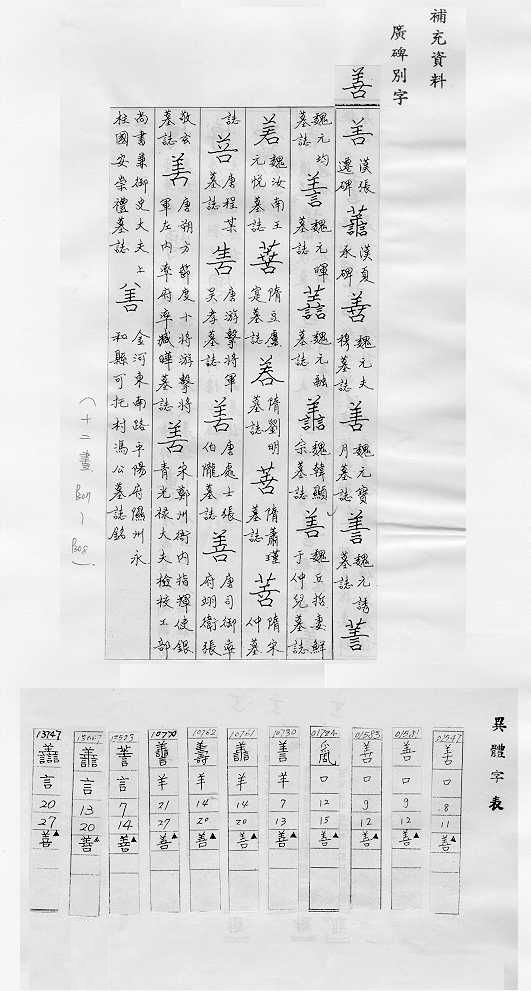 補充資料
廣碑別字
善
善 漢張遷碑 漢夏承碑 善 魏元夫墓誌 善 魏元寶月墓誌 善 魏元誘墓誌
魏元均墓誌 魏元暉墓誌 魏元融墓誌 譱 魏韓顯宗墓誌 善 魏丘哲妻鮮于仲兒墓誌
魏汝南王元悅墓誌 隋豆盧寔墓誌 隋劉明墓誌 隋蕭瑾墓誌 隋宋仲墓
誌 唐程某墓誌 唐游擊將軍吳孝墓誌 善 唐處士張伯隴墓誌 善 唐司御率府翊衛張
敬玄墓誌 善 唐朔方節度十將游擊將軍左內率府率臧曄墓誌 善 宋鄭州衙內指揮使銀青光祿大夫檢校工部
尚書兼御史大夫上柱國安崇禮墓誌 善 金河東南路平陽府隰州永和縣可托村馮公墓誌銘
(十二畫
異體字表
01547 口 8 11 善▲
01581 善 口 9 12 善▲
01583 善 口 9 12 善▲
01724 口 12 15 善▲
10730 羊 7 13 善▲
10761 譱 羊 14 20 善▲
10762 羊 14 20 善▲
10770 羊 21 27 善▲
13593 言 7 14 善▲
13667 譱 言 13 20 善▲
13747 言 20 27 善▲